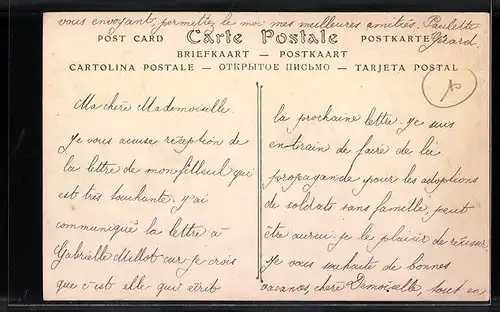 vous envoyant, permettez le moi mes meilleures amitiés. Paulette
Gérard.
POST CARD Carte Postale POSTKARTE
BRIEFKAART — POSTKAART
CARTOLINA POSTALE — ОТКРЫТОЕ ПИСЬМО — TARJETA POSTAL
Ma chère Mademoiselle.
Je vous accuse réception de
la lettre de mon filleul qui
est très touchante. J'ai
communiqué la lettre à
Gabrielle Mellot car je crois
que c'est elle qui écrit
la prochaine lettre. Je suis
en train de faire de la
propagande pour les adoptions
de soldats sans famille, peut
être aurai-je le plaisir de réussir.
Je vous souhaite de bonnes
vacances, chère Demoiselle, tout en